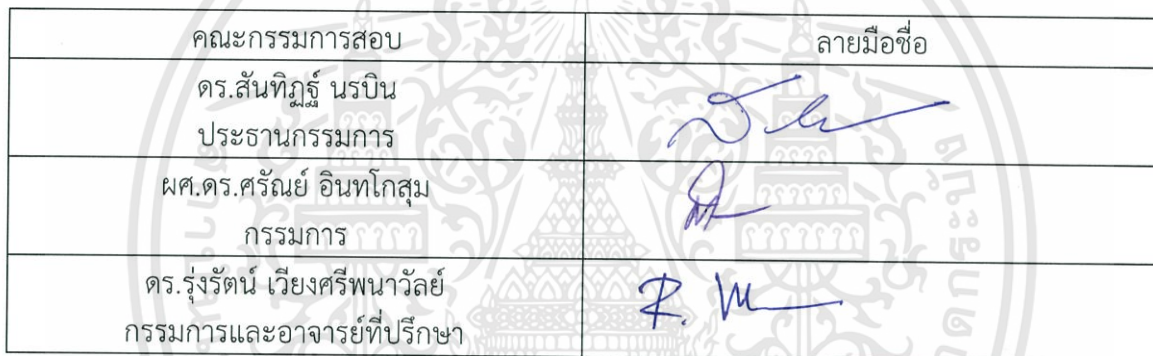 คณะกรรมการสอบ ลายมือชื่อ
ดร.สันทิฏฐ์ นรบิน
ประธานกรรมการ
ผศ.ดร.ศรัณย์ อินทโกสุม
กรรมการ
ดร.รุ่งรัตน์ เวียงศรีพนาวัลย์
กรรมการและอาจารย์ที่ปรึกษา